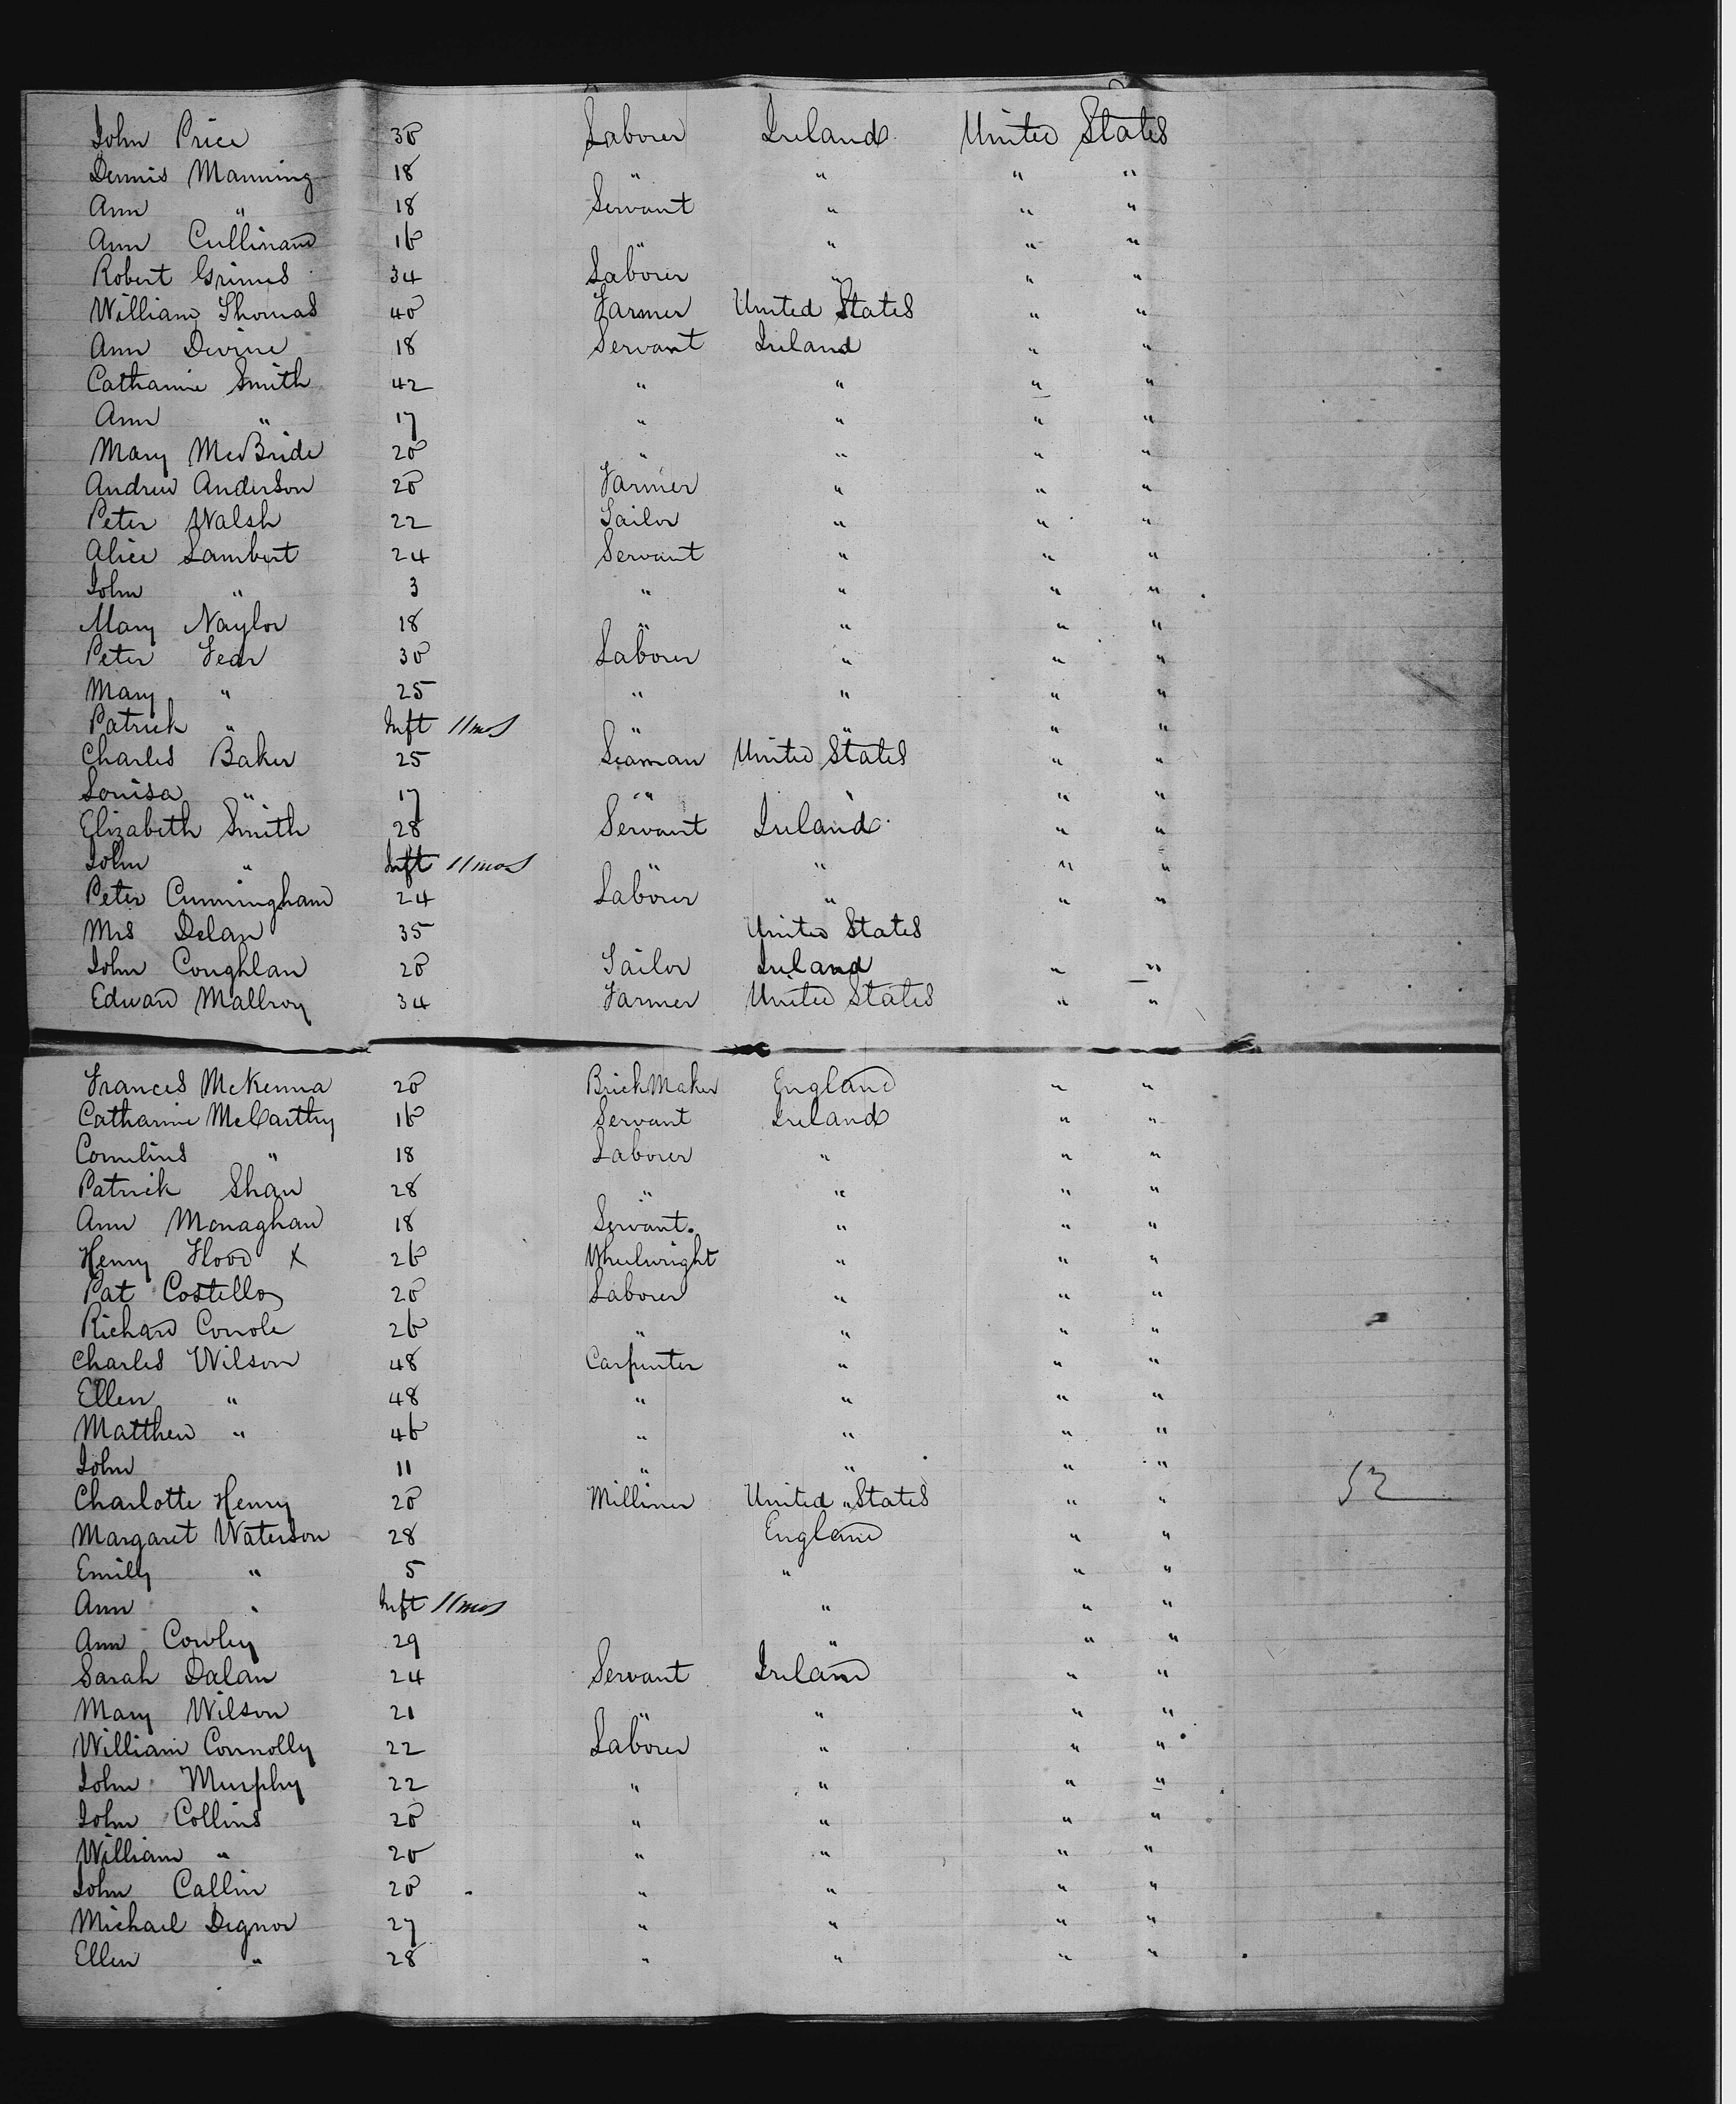 John Price 30 Laborer Ireland United States
Dennis Manning 18 " " " "
Ann " 18 Servant " " "
Ann Cullinane 16 " " " "
Robert Grimes 34 Laborer " " "
William Thomas 40 Farmer United States " "
Ann Devine 18 Servant Ireland " "
Catharine Smith 42 " " " "
Ann " 17 " " " "
Mary McBride 20 " " " "
Andrew Anderson 20 Farmer " " "
Peter Walsh 22 Sailor " " "
Alice Lambert 24 Servant " " "
John " 3 " " " "
Mary Naylor 18 " " " "
Peter Fear 30 Laborer " " "
Mary " 25 " " " "
Patrick " Inft 11mos " " " "
Charles Baker 25 Seaman United States " "
Louisa " 17 " " " "
Elizabeth Smith 28 Servant Ireland " "
John " Inft 11mos " " " "
Peter Cunningham 24 Laborer " " "
Mrs Delan 35 United States
John Coughlan 20 Sailor Ireland " "
Edward Mallroy 34 Farmer United States " "
Frances McKenna 20 BrickMaker England " "
Catharine McCarthy 16 Servant Ireland " "
Cornelius " 18 Laborer " " "
Patrick Shaw 28 " " " "
Ann Monaghan 18 Servant. " " "
Henry Flood X 26 Wheelwright " " "
Pat Costelloy 20 Laborer " " "
Richard Conole 26 " " " "
Charles Wilson 48 Carpenter " " "
Ellen " 48 " " " "
Matthew " 46 " " " "
John 11 " " " "
Charlotte Henry 20 Milliner United States " " 52
Margaret Waterson 28 England " "
Emilly " 5 " " "
Ann " Inft 11mos " " "
Ann Cowley 29 " " "
Sarah Dalan 24 Servant Ireland " "
Mary Wilson 21 " " " "
William Connolly 22 Laborer " " "
John Murphy 22 " " " "
John Collins 20 " " " "
William " 20 " " " "
John Callin 20 " " " "
Michael Dignor 27 " " " "
Ellen " 28 " " " "